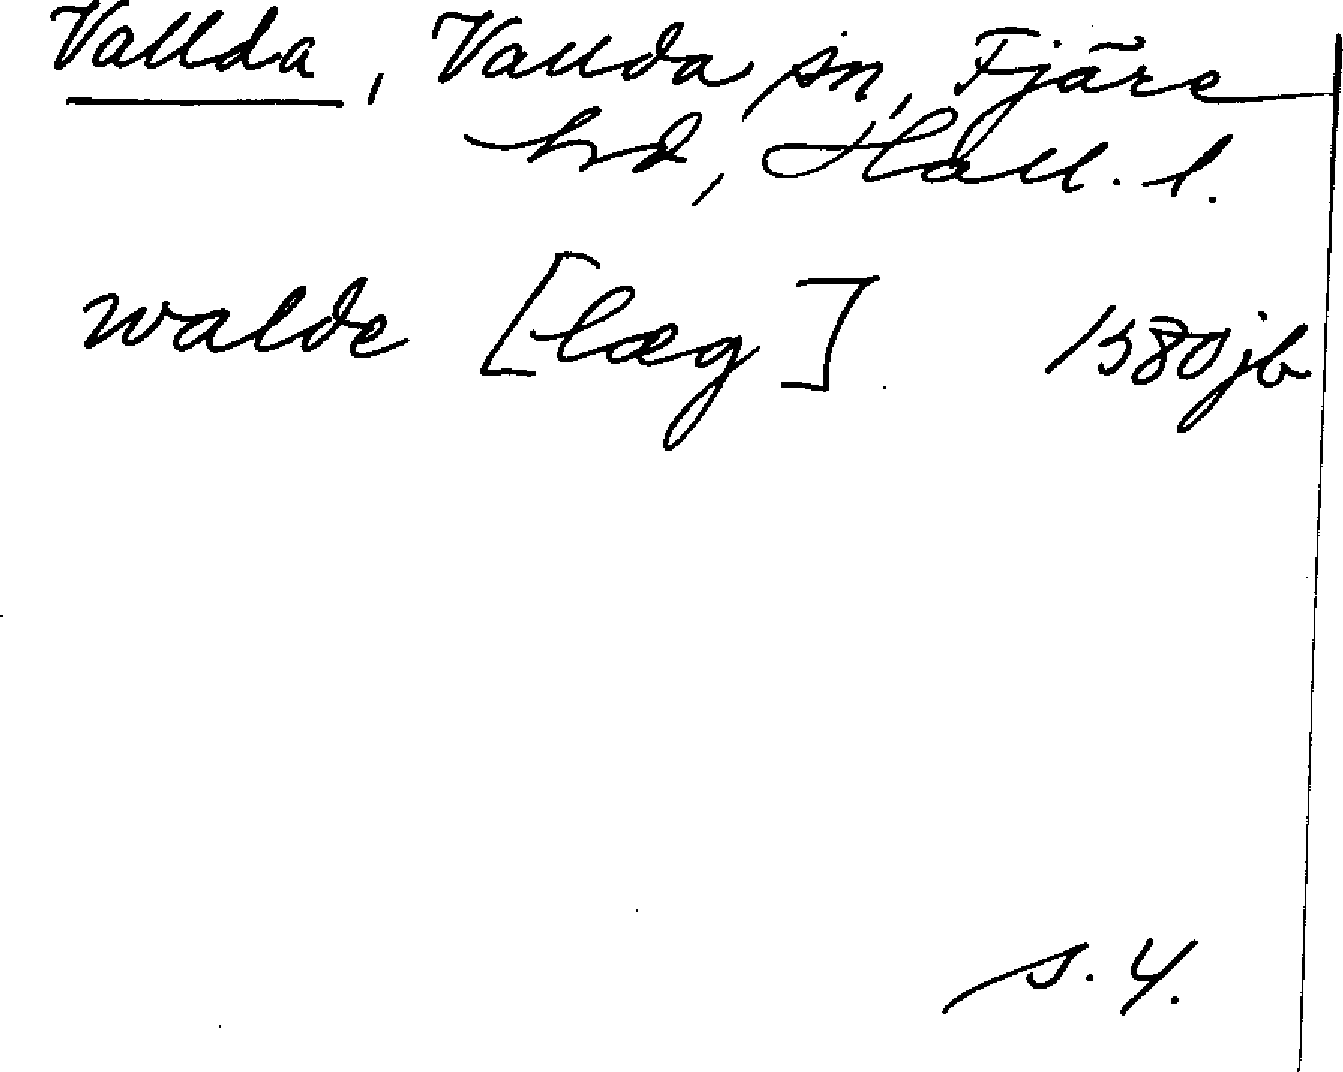 Vallda, Vallda sn, Fjäre
hd, Hall. l.
walde [læg] 1580 jb
s. 4.